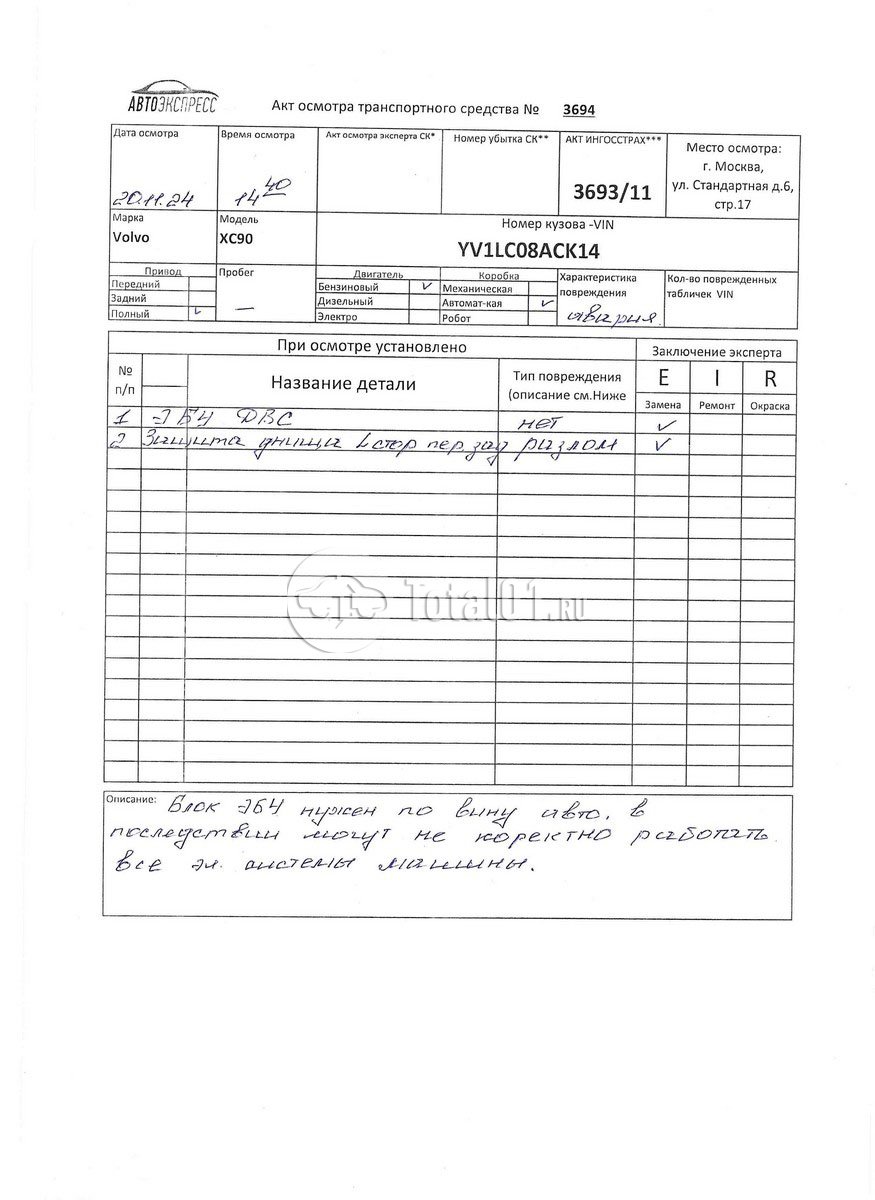 АВТОЭКСПРЕСС
Акт осмотра транспортного средства № 3694
Дата осмотра
20.11.24
Время осмотра
14 40
Акт осмотра эксперта СК*
Номер убытка СК**
АКТ ИНГОССТРАХ***
3693/11
Место осмотра:
г. Москва,
ул. Стандартная д.6,
стр.17
Марка
Volvo
Модель
XC90
Номер кузова -VIN
YV1LC08ACK14
Привод
Передний
Задний
Полный ✓
Пробег
—
Двигатель
Бензиновый ✓
Дизельный
Электро
Коробка
Механическая
Автомат-кая ✓
Робот
Характеристика
повреждения
авария
Кол-во поврежденных
табличек VIN
При осмотре установлено
Заключение эксперта
№
п/п
Название детали
Тип повреждения
(описание см.Ниже
E I R
Замена Ремонт Окраска
1 ЭБУ ДВС нет ✓
2 Защита днища L стор пер зад разлом ✓
Total01.RU
Описание: Блок ЭБУ нужен по вину авто, в
последствии могут не коректно работать
все эл. системы машины.